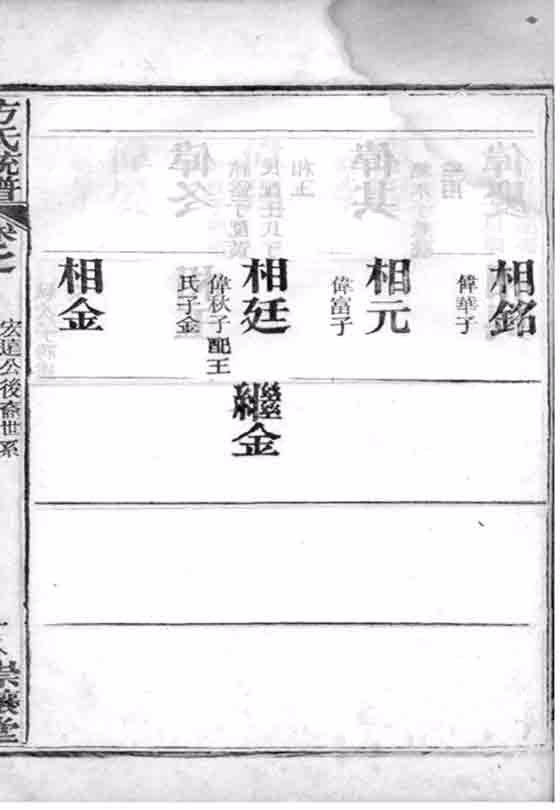 相銘
偉華子
相元
偉富子
相廷
偉秋子配王
氏子金
繼金
相金
方氏統譜
宏達公後裔世系